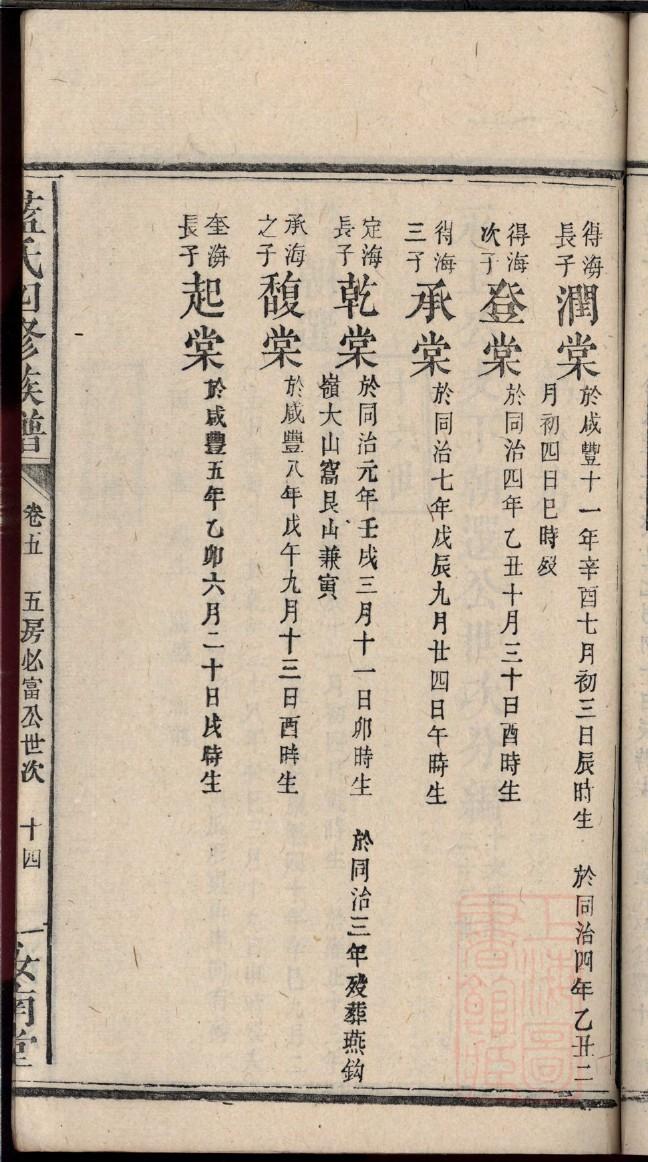 得海長子潤棠於咸豐十一年辛酉七月初三日辰時生 於同治四年乙丑二
月初四日巳時歿
得海次子登棠於同治四年乙丑十月三十日酉時生
得海三子承棠於同治七年戊辰九月廿四日午時生
定海長子乾棠於同治元年壬戌三月十一日卯時生 於同治三年歿葬燕鈎
嶺大山窩艮山兼寅
承海之子馥棠於咸豐八年戊午九月十三日酉時生
奎海長子起棠於咸豐五年乙卯六月二十日戌時生
藍氏四修族譜 卷五 五房必富公世次 十四 汝南堂
上海圖書館藏